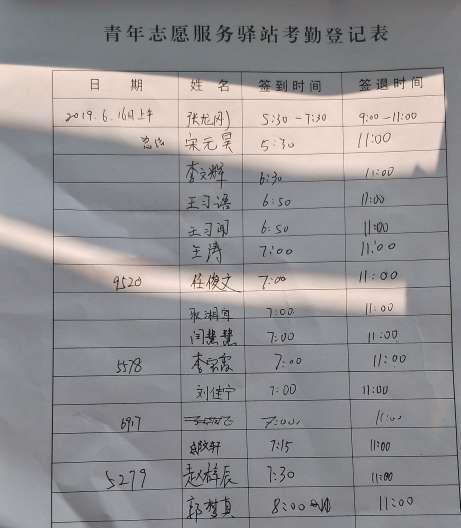 青年志愿服务驿站考勤登记表
日 期 姓 名 签到时间 签退时间
2019.6.16日上午 5:30-7:30 9:00-11:00
宋元昊 5:30 11:00
李文辉 6:30 11:00
王习语 6:50 11:00
王习 6:50 11:00
王涛 7:00 11:00
9520 任俊文 7:00 11:00
耿湘 7:00 11:00
闫慧慧 7:00 11:00
5578 李雲霞 7:00 11:00
刘佳宁 7:00 11:00
6917 7:00 11:00
7:15 11:00
5279 赵梓辰 7:30 11:00
郭梦真 8:00 11:00